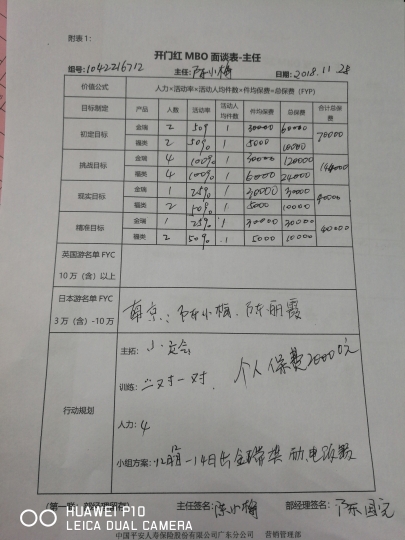 附表1:
开门红 MBO 面谈表-主任
组号:1042216712 主任:陈小梅 日期:2018.11.28
价值公式 人力×活动率×活动人均件数×件均保费=总保费(FYP)
目标制定 产品 人数 活动率 活动人均件数 件均保费 总保费 合计总保费
初定目标 金瑞 2 50% 1 30000 60000 70000
福类 2 50% 1 5000 10000
挑战目标 金瑞 4 100% 1 30000 120000 144000
福类 4 100% 1 6000 24000
现实目标 金瑞 1 25% 1 30000 30000 40000
福类 2 50% 1 5000 10000
精准目标 金瑞 1 25% 1 30000 30000 40000
福类 2 50% 1 5000 10000
英国游名单 FYC
10 万(含)以上
日本游名单 FYC
3 万(含)-10万
南京:陈小梅、陈丽霞
行动规划
主拓:小交会
训练:二对一对. 个人保费20000元
人力:4
小组方案:12月 一14日出金瑞奖 电饭煲
主任签名:陈小梅 部经理签名:
HUAWEI P10
LEICA DUAL CAMERA
中国平安人寿保险股份有限公司广东分公司 营销管理部